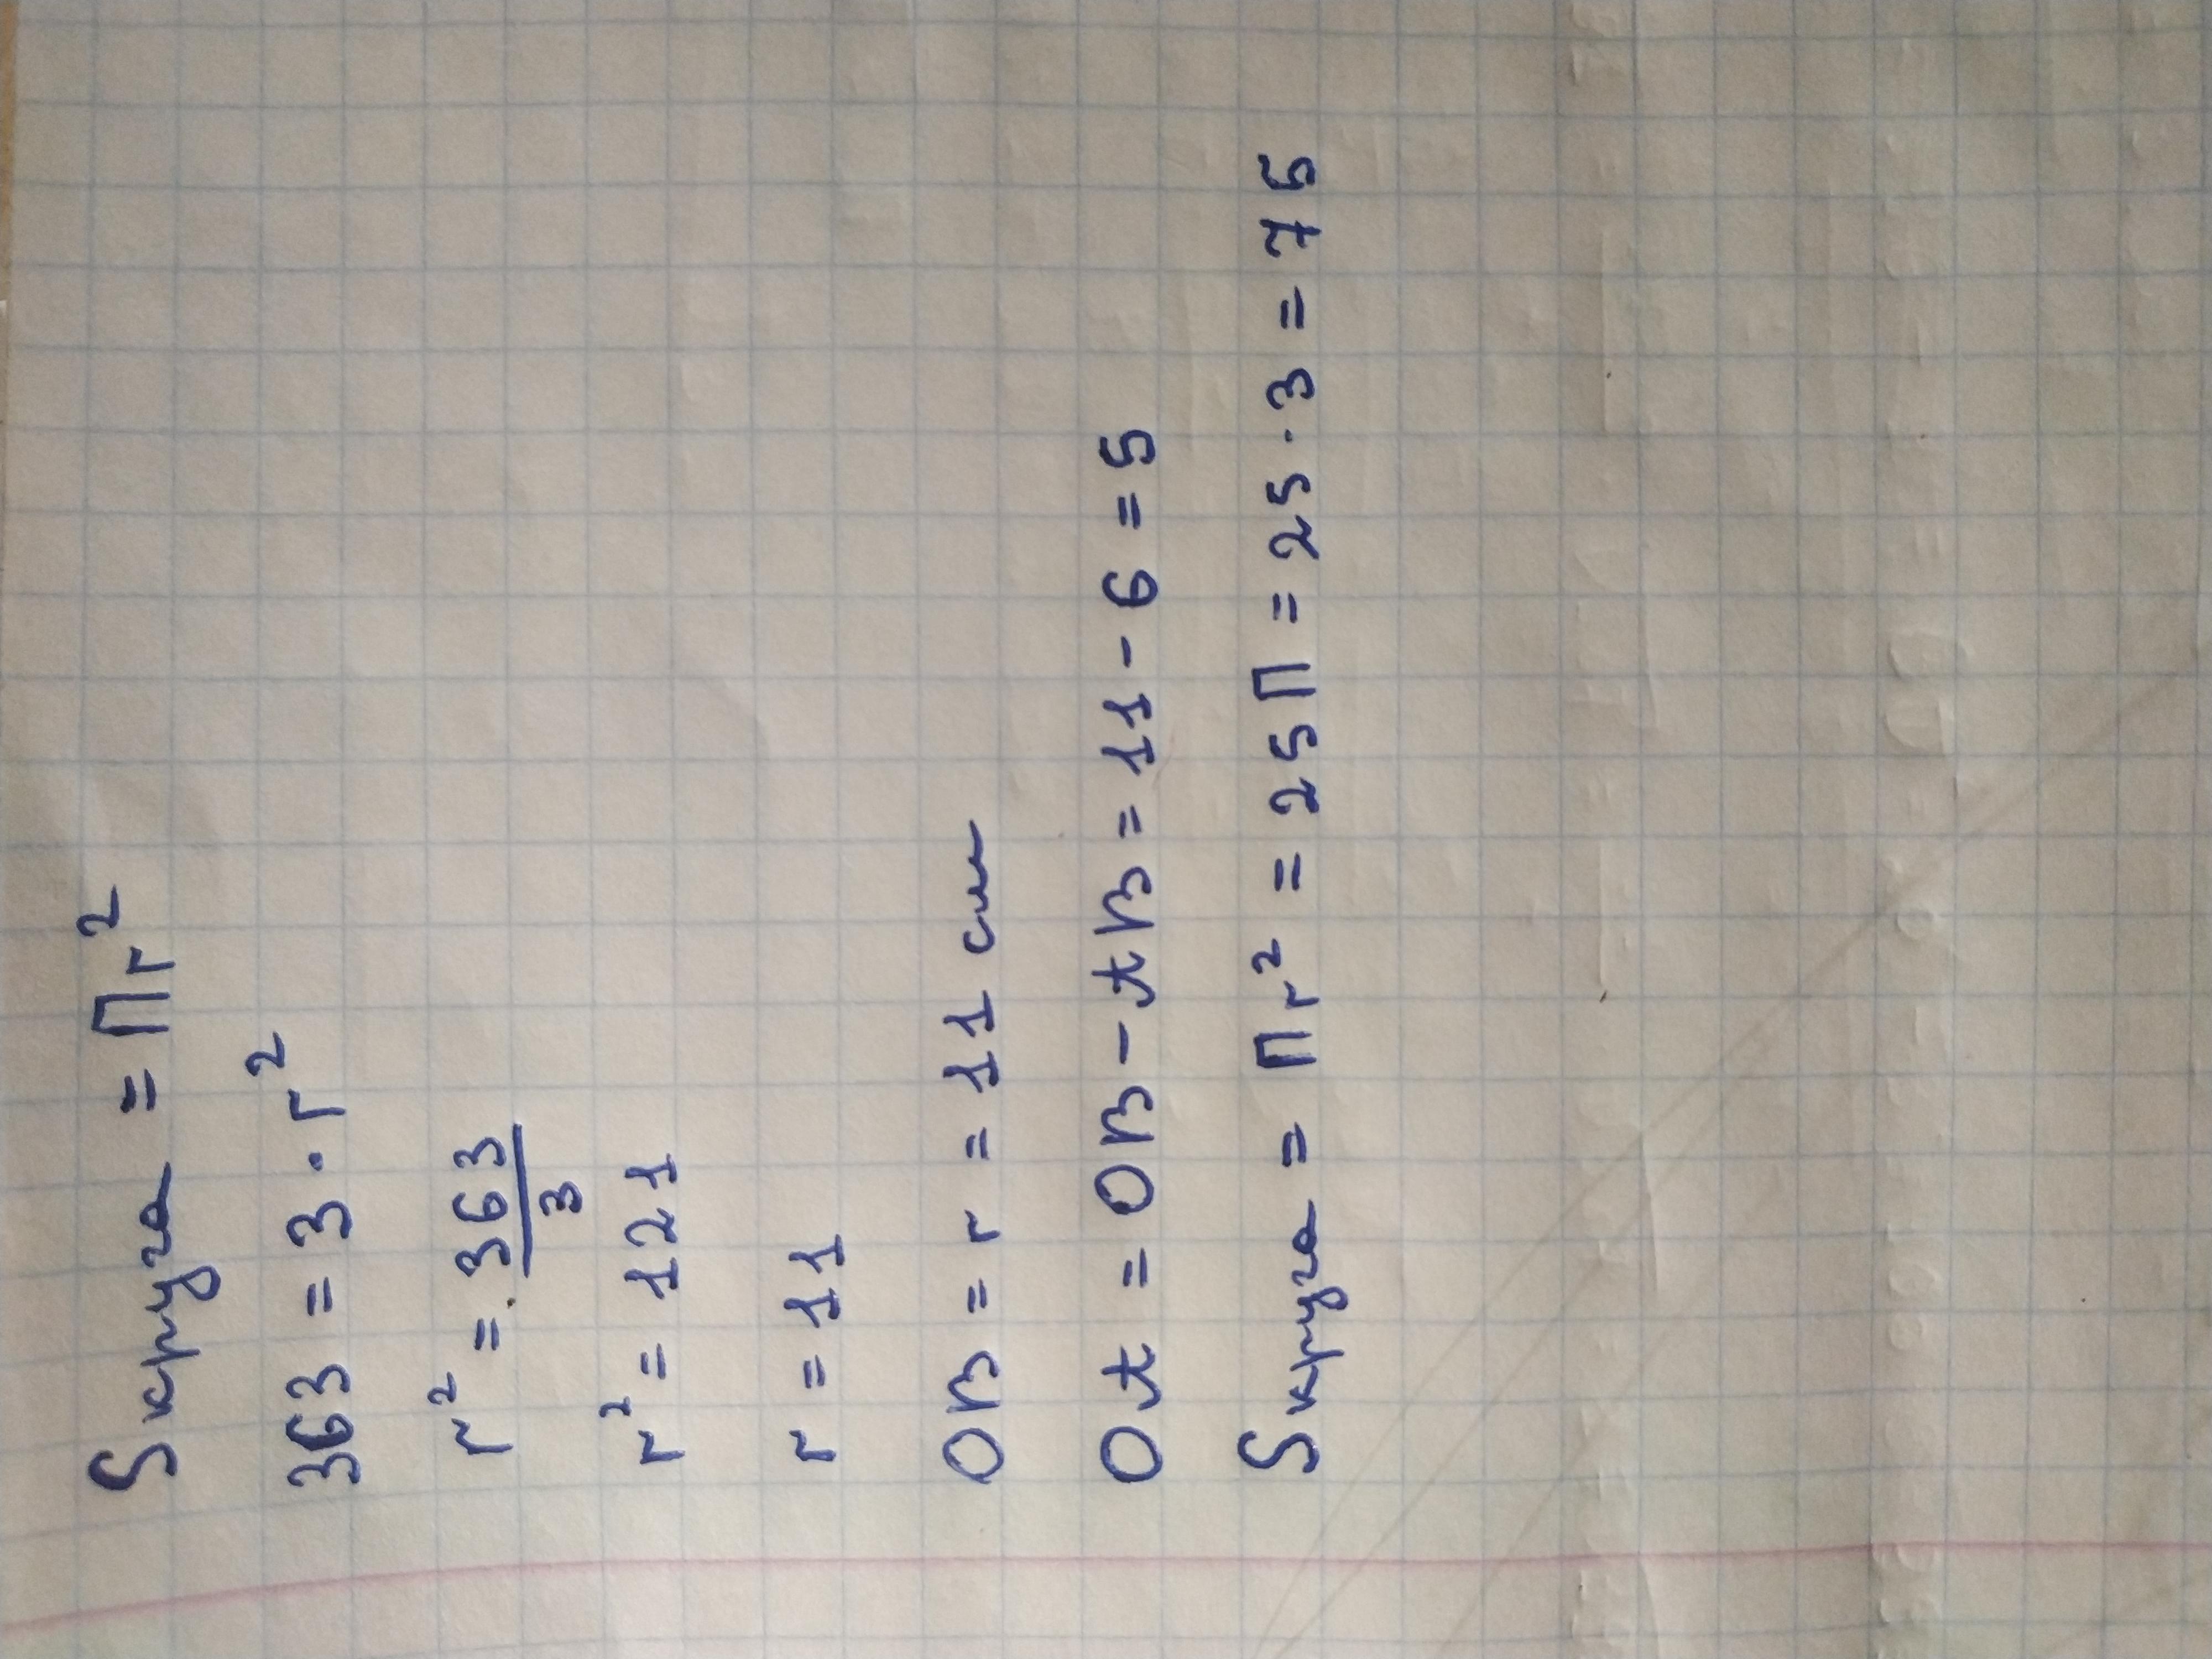 Sкруга = Пr²
363 = 3 · r²
r² = 363/3
r² = 121
r = 11
OB = r = 11 см
OA = OB - AB = 11 - 6 = 5
Sкруга = Пr² = 25П = 25 · 3 = 75